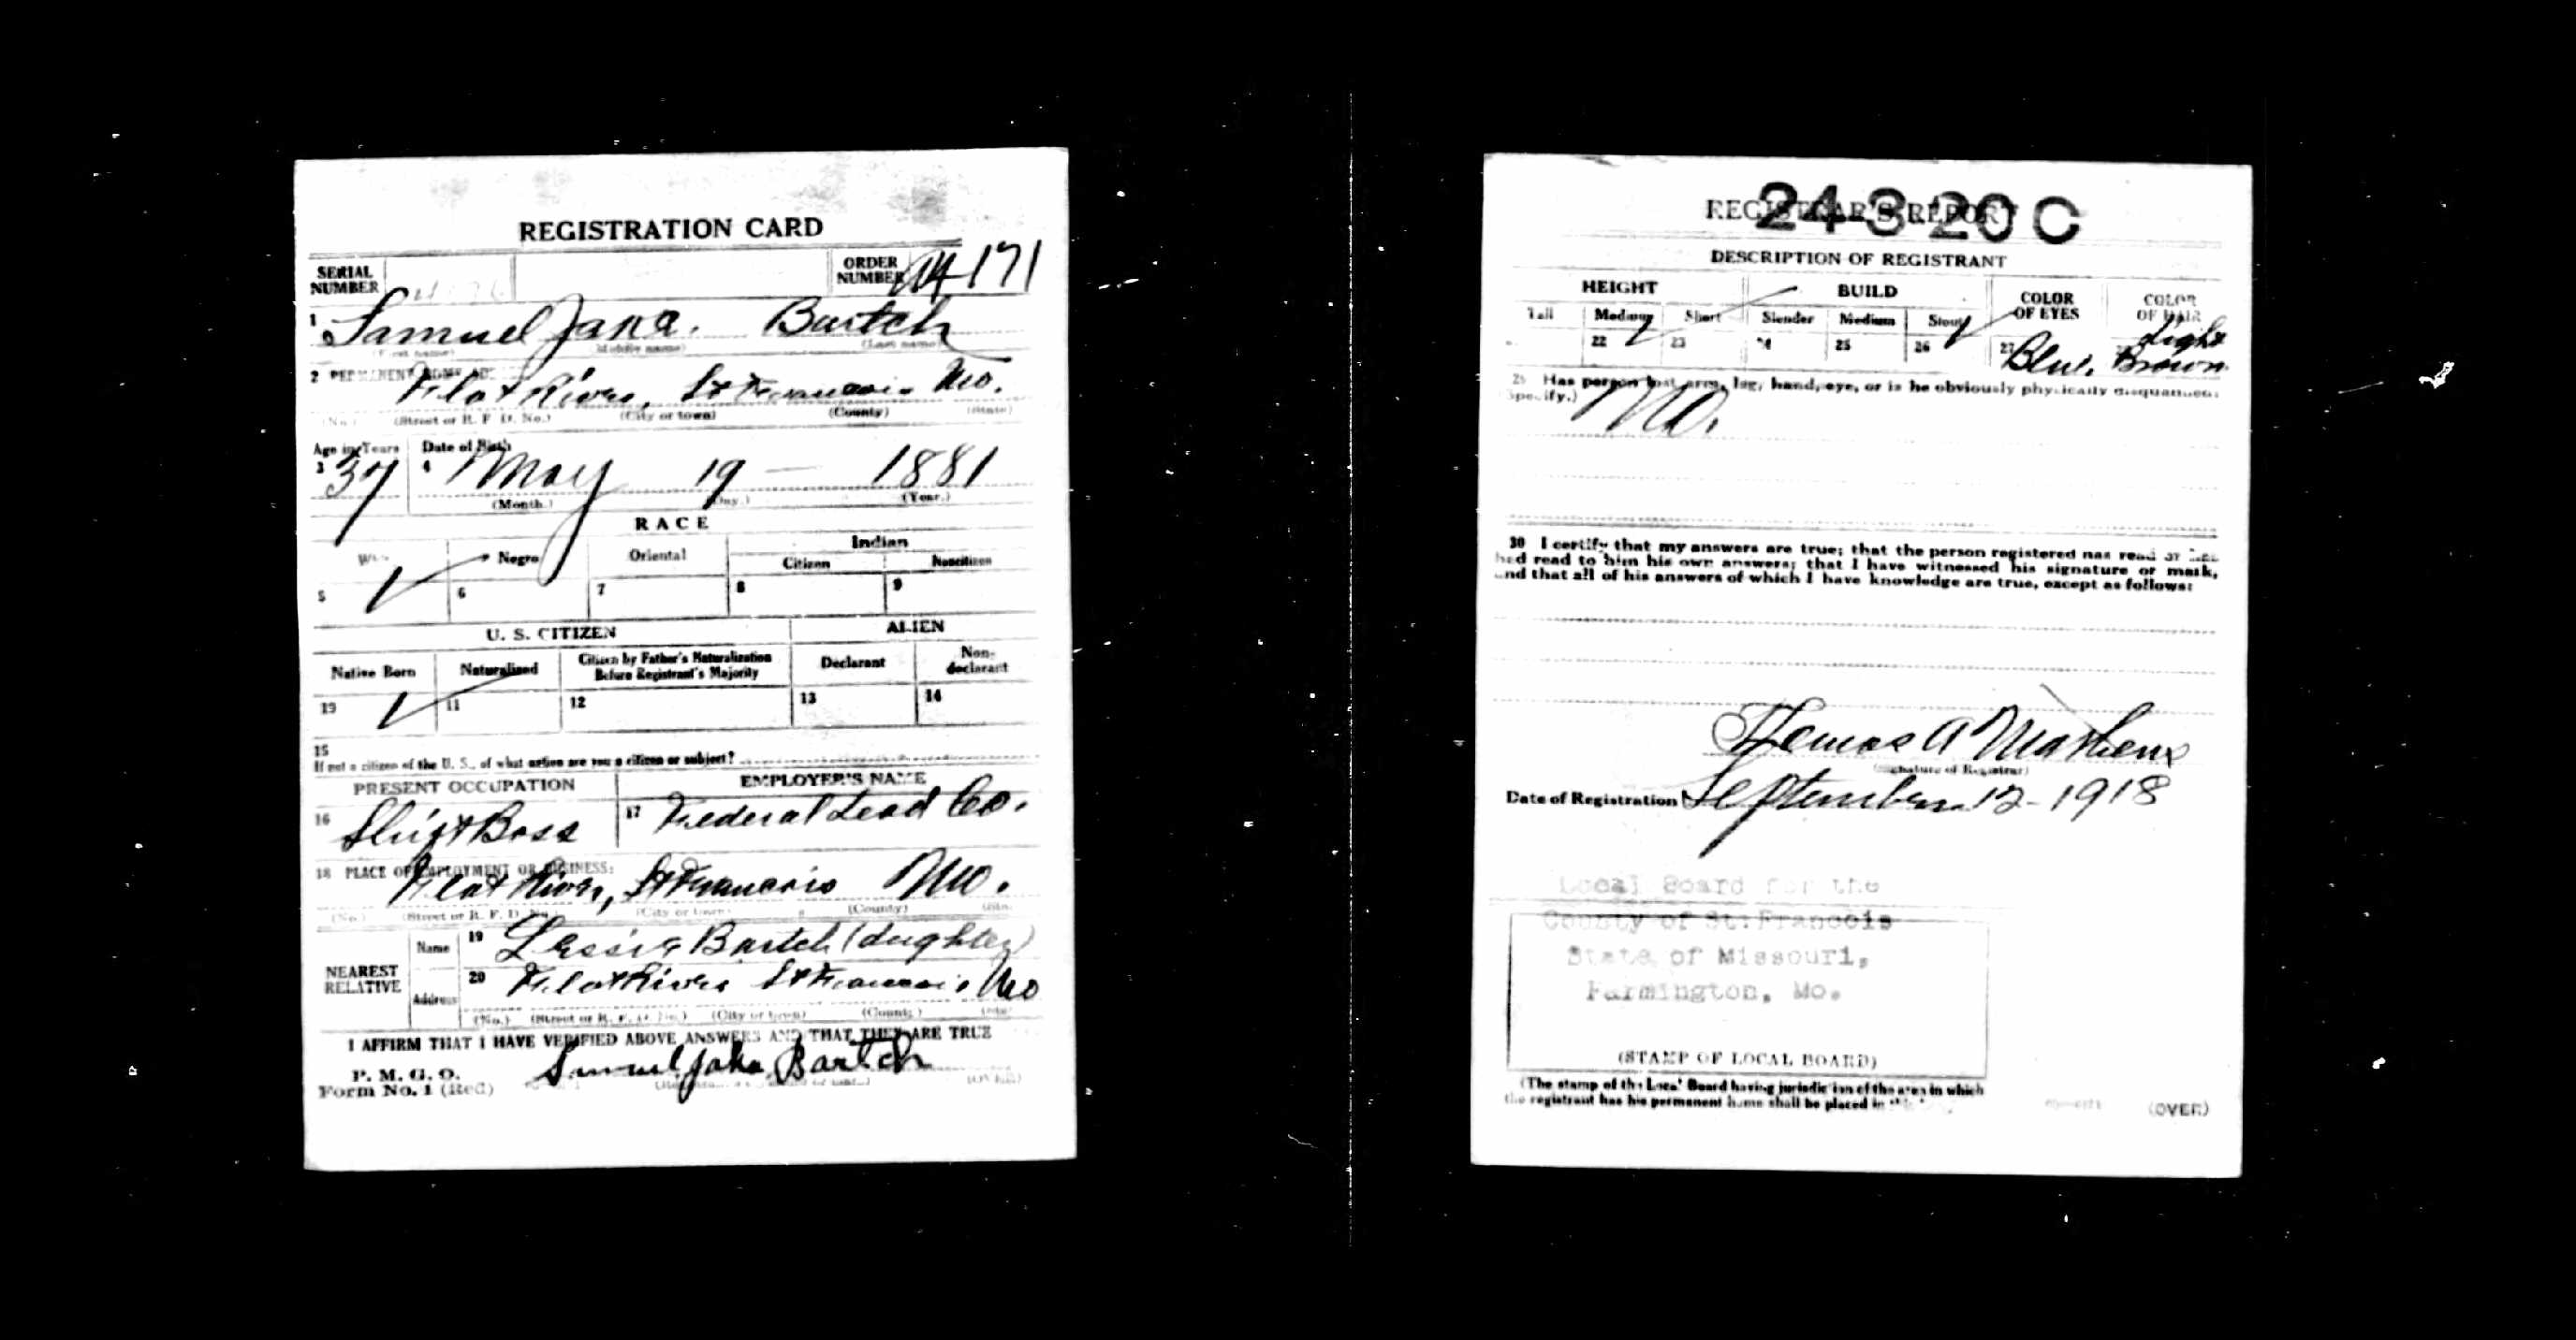 REGISTRATION CARD
SERIAL NUMBER
ORDER NUMBER 171
1 Samuel Bartch
(First name) (Middle name) (Last name)
2 PERMANENT HOME AD
Flat River, St Francois Mo.
(No.) (Street or R. F. D. No.) (City or town) (County) (State)
Age in Years Date of Birth
3 37 4 May 19 — 1881
(Month.) (Day.) (Year.)
RACE
White Negro Oriental Indian
Citizen Noncitizen
5 6 7 8 9
U. S. CITIZEN ALIEN
Native Born Naturalized Citizen by Father's Naturalization Before Registrant's Majority Declarant Non-declarant
10 11 12 13 14
15
If not a citizen of the U. S., of what nation are you a citizen or subject?
PRESENT OCCUPATION EMPLOYER'S NAME
16 Shift Boss 17 Federal Lead Co.
18 PLACE OF EMPLOYMENT OR BUSINESS:
Flat River, St Francois Mo.
(No.) (Street or R. F. D. No.) (City or town) (County) (State)
NEAREST RELATIVE
Name 19 Lessie Bartch (dughter)
Address 20 Flat River St Francois Mo
(No.) (Street or R. F. D. No.) (City or town) (County) (State)
I AFFIRM THAT I HAVE VERIFIED ABOVE ANSWERS AND THAT THEY ARE TRUE
P. M. G. O.
Form No. 1 (Red) Samuel Bartch
(OVER)
REGISTRAR'S REPORT
24-3-20 C
DESCRIPTION OF REGISTRANT
HEIGHT BUILD COLOR OF EYES COLOR OF HAIR
Tall Medium Short Slender Medium Stout
22 23 24 25 26 27 Blue. Light Brown
29 Has person lost arm, leg, hand, eye, or is he obviously physically disqualified?
(Specify.) No.
30 I certify that my answers are true; that the person registered has read or has
had read to him his own answers; that I have witnessed his signature or mark,
and that all of his answers of which I have knowledge are true, except as follows:
Thomas A
(Signature of Registrar)
Date of Registration September 12-1918
Local Board for the
County of St. Francois
State of Missouri,
Farmington, Mo.
(STAMP OF LOCAL BOARD)
(The stamp of the Local Board having jurisdiction of the area in which
the registrant has his permanent home shall be placed in this
(OVER)